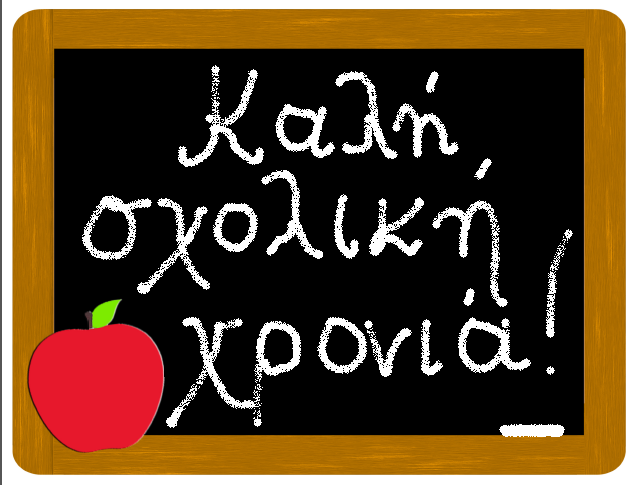 Καλή
σχολική
χρονιά!